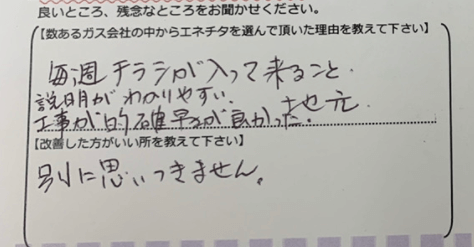 良いところ、残念なところをお聞かせください。
【数あるガス会社の中からエネチタを選んで頂いた理由を教えて下さい】
毎週チラシが入って来ること.
説明がわかりやすい.
工事が的確早さが良かった. 地元
【改善した方がいい所を教えて下さい】
別に思いつきません。